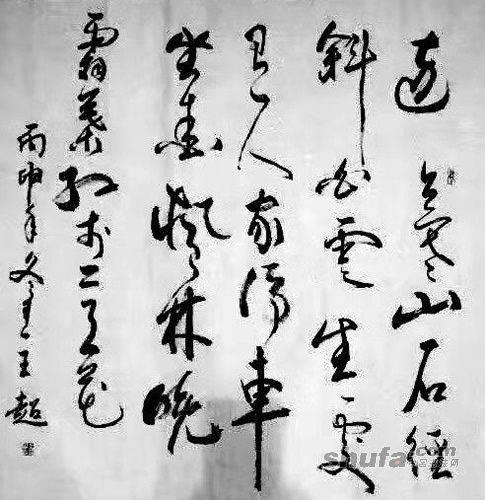 遠上寒山石徑
斜白雲生處
有人家停車
坐愛楓林晚
霜葉紅於二月花
丙申年冬王超
shufa.com